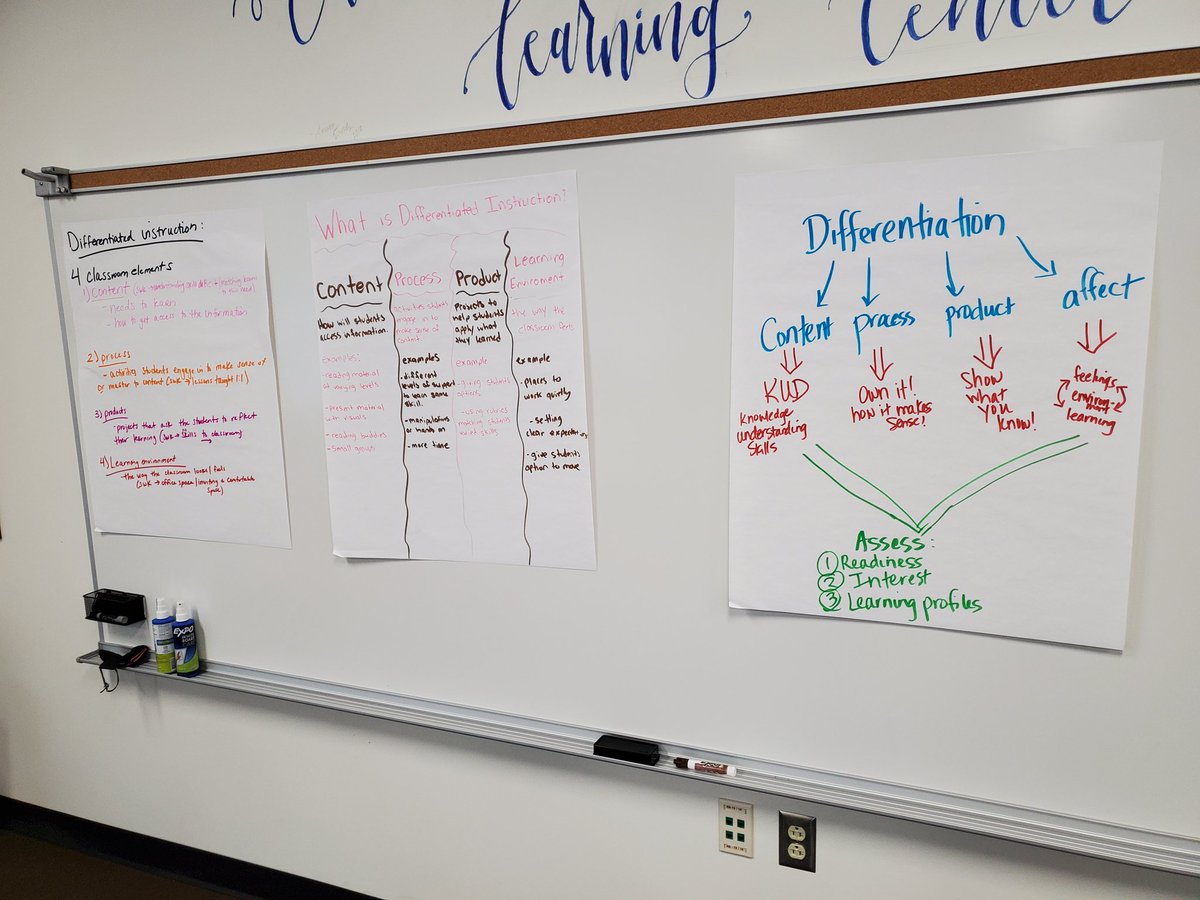 Learning Center
Differentiated instruction:
4 classroom elements
1) content
- needs to learn
- how to get access to the information
2) process
- activities students engage in to make sense of
or master to content (SWK → lessons taught 1:1)
3) products
- projects that ask the students to reflect
their learning (SWK → skills to classroom)
4) Learning environment
- the way the classroom looks/feels
(SWK → office space/inviting a comfortable
space)
What is Differentiated Instruction?
Content
How will students
access information.
examples:
- reading material
of varying levels
- present material
with visuals
- reading buddies
- small groups
Process
activities students
engage in to
make sense of
content
examples
- different
levels of support
to learn same
skill.
- manipulatives
or hands on
- more time
Product
Projects to
help students
apply what
they learned
example
- giving students
options
- using rubrics
matching students
skills
Learning
Enviroment
the way the
classroom feels
example
- places to
work quietly
- setting
clear expectations
- give students
option to move
Differentiation
Content process product affect
KUD
Knowledge
understanding
skills
Own it!
how it makes
sense!
Show
what
you
know!
feelings
environ-
ment
learning
Assess:
1 Readiness
2 Interest
3 Learning profiles
EXPO